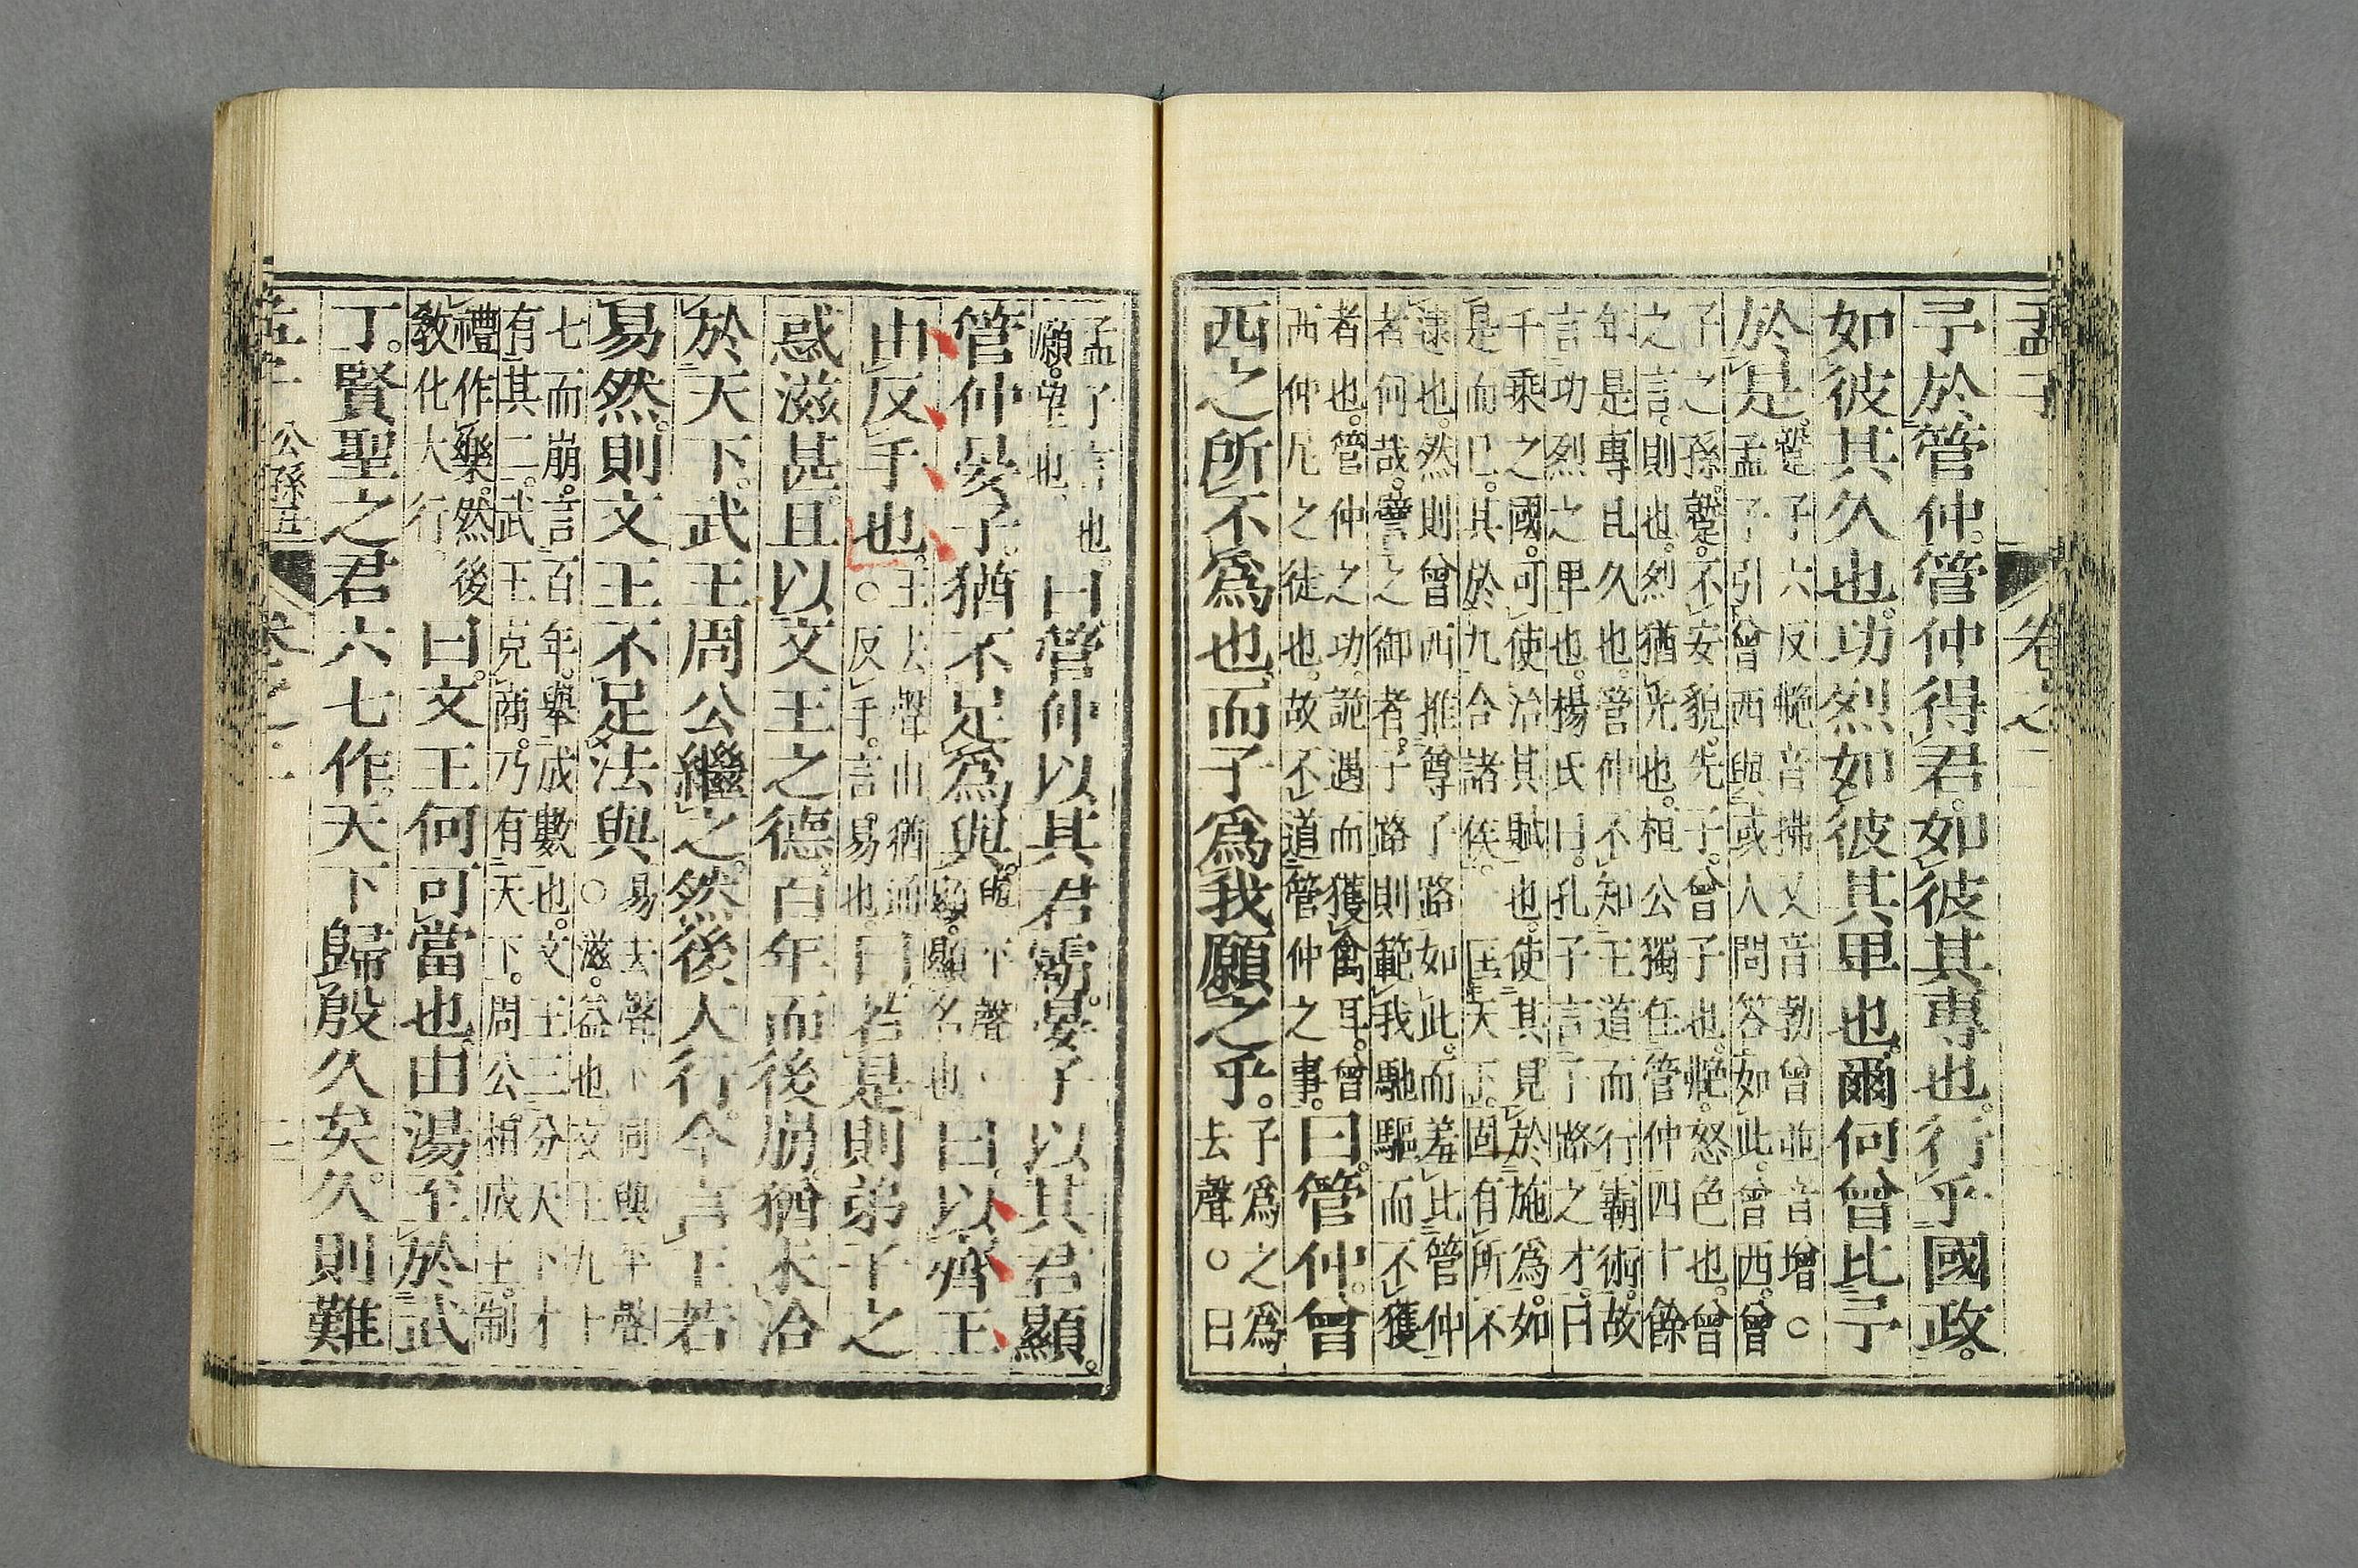 孟子 卷之二
予於管仲。管仲得君。如彼其專也。行乎國政。
如彼其久也。功烈如彼其卑也。爾何曾比予
於是。蹵子六反艴音拂又音勃曾並音增○
孟子引曾西與或人問答如此。曾西。曾
子之孫。蹵。不安貌。先子。曾子也。艴。怒色也。曾
之言。則也。烈猶光也。桓公獨任管仲四十餘
年是專且久也。管仲不知王道而行霸術。故
言功烈之卑也。楊氏曰。孔子言子路之才。曰
千乘之國。可使治其賦也。使其見於施爲。如
是而已。其於九合諸侯。一匡天下。固有所不
逮也。然則曾西推尊子路如此。而羞比管仲
者何哉。譬之御者。子路則範我馳驅而不獲
者也。管仲之功。詭遇而獲禽耳。曾
西仲尼之徒也。故不道管仲之事。曰管仲。曾
西之所不爲也。而子爲我願之乎。子爲之爲
去聲○曰
孟子言也。
願。望也。曰管仲以其君霸。晏子以其君顯。
管仲晏子。猶不足爲與。與平聲
顯。顯名也。曰。以齊王
由反手也。王去聲由猶通
○反手。言易也。曰。若是則弟子之
惑滋甚。且以文王之德。百年而後崩。猶未洽
於天下。武王周公繼之。然後大行。今言王若
易然。則文王不足法與。易去聲下同與平聲
○滋。益也。文王九十
七而崩。言百年。舉成數也。文王三分天下才
有其二。武王克商。乃有天下。周公相成王。制
禮作樂。然後
敎化大行。曰。文王何可當也。由湯至於武
丁。賢聖之君六七作。天下歸殷久矣。久則難
孟子 公孫丑 卷之二 三